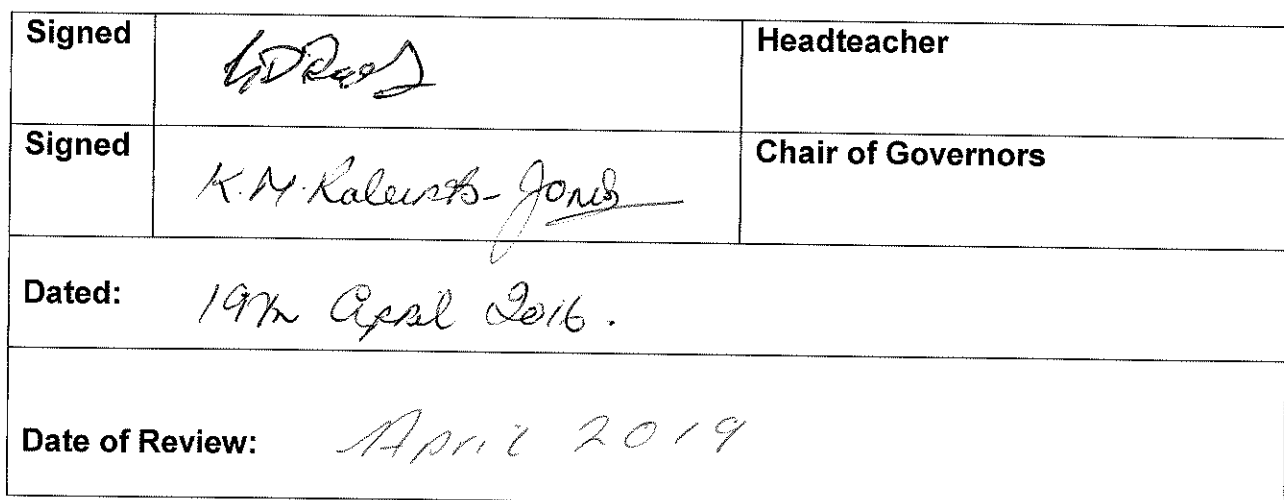 Signed Headteacher
Signed K.M. Roberts-Jones Chair of Governors
Dated: 19th April 2016.
Date of Review: April 2019